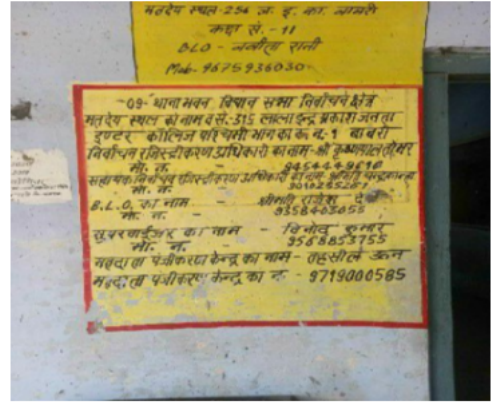 मतदेय स्थल-254 ज. इ. का. लावसी
कक्ष सं. - 11
B.L.O - बबीता रानी
Mob- 9675936030-
-09- थानाभवन विधान सभा निर्वाचन क्षेत्र
मतदेय स्थल का नाम व सं.-315 लाला इन्द्र प्रकाश जनता
इण्टर कॉलिज पश्चिमी भाग का क.न.-1 बाबरी
निर्वाचन रजिस्ट्रीकरण अधिकारी का नाम-श्री कृष्णपाल तोमर
मो. न. - 9454449618
सहायक निर्वाचन रजिस्ट्रीकरण अधिकारी का नाम श्रीमति
मो. न.
B.L.O. का नाम - श्रीमति राजेश दे
मो. न. 9358403055
सुपरवाईजर का नाम - विनोद कुमार
मो. न. 9568853755
मतदाता पंजीकरण केन्द्र का नाम - तहसील ऊन
मतदाता पंजीकरण केन्द्र का न - 9719000585